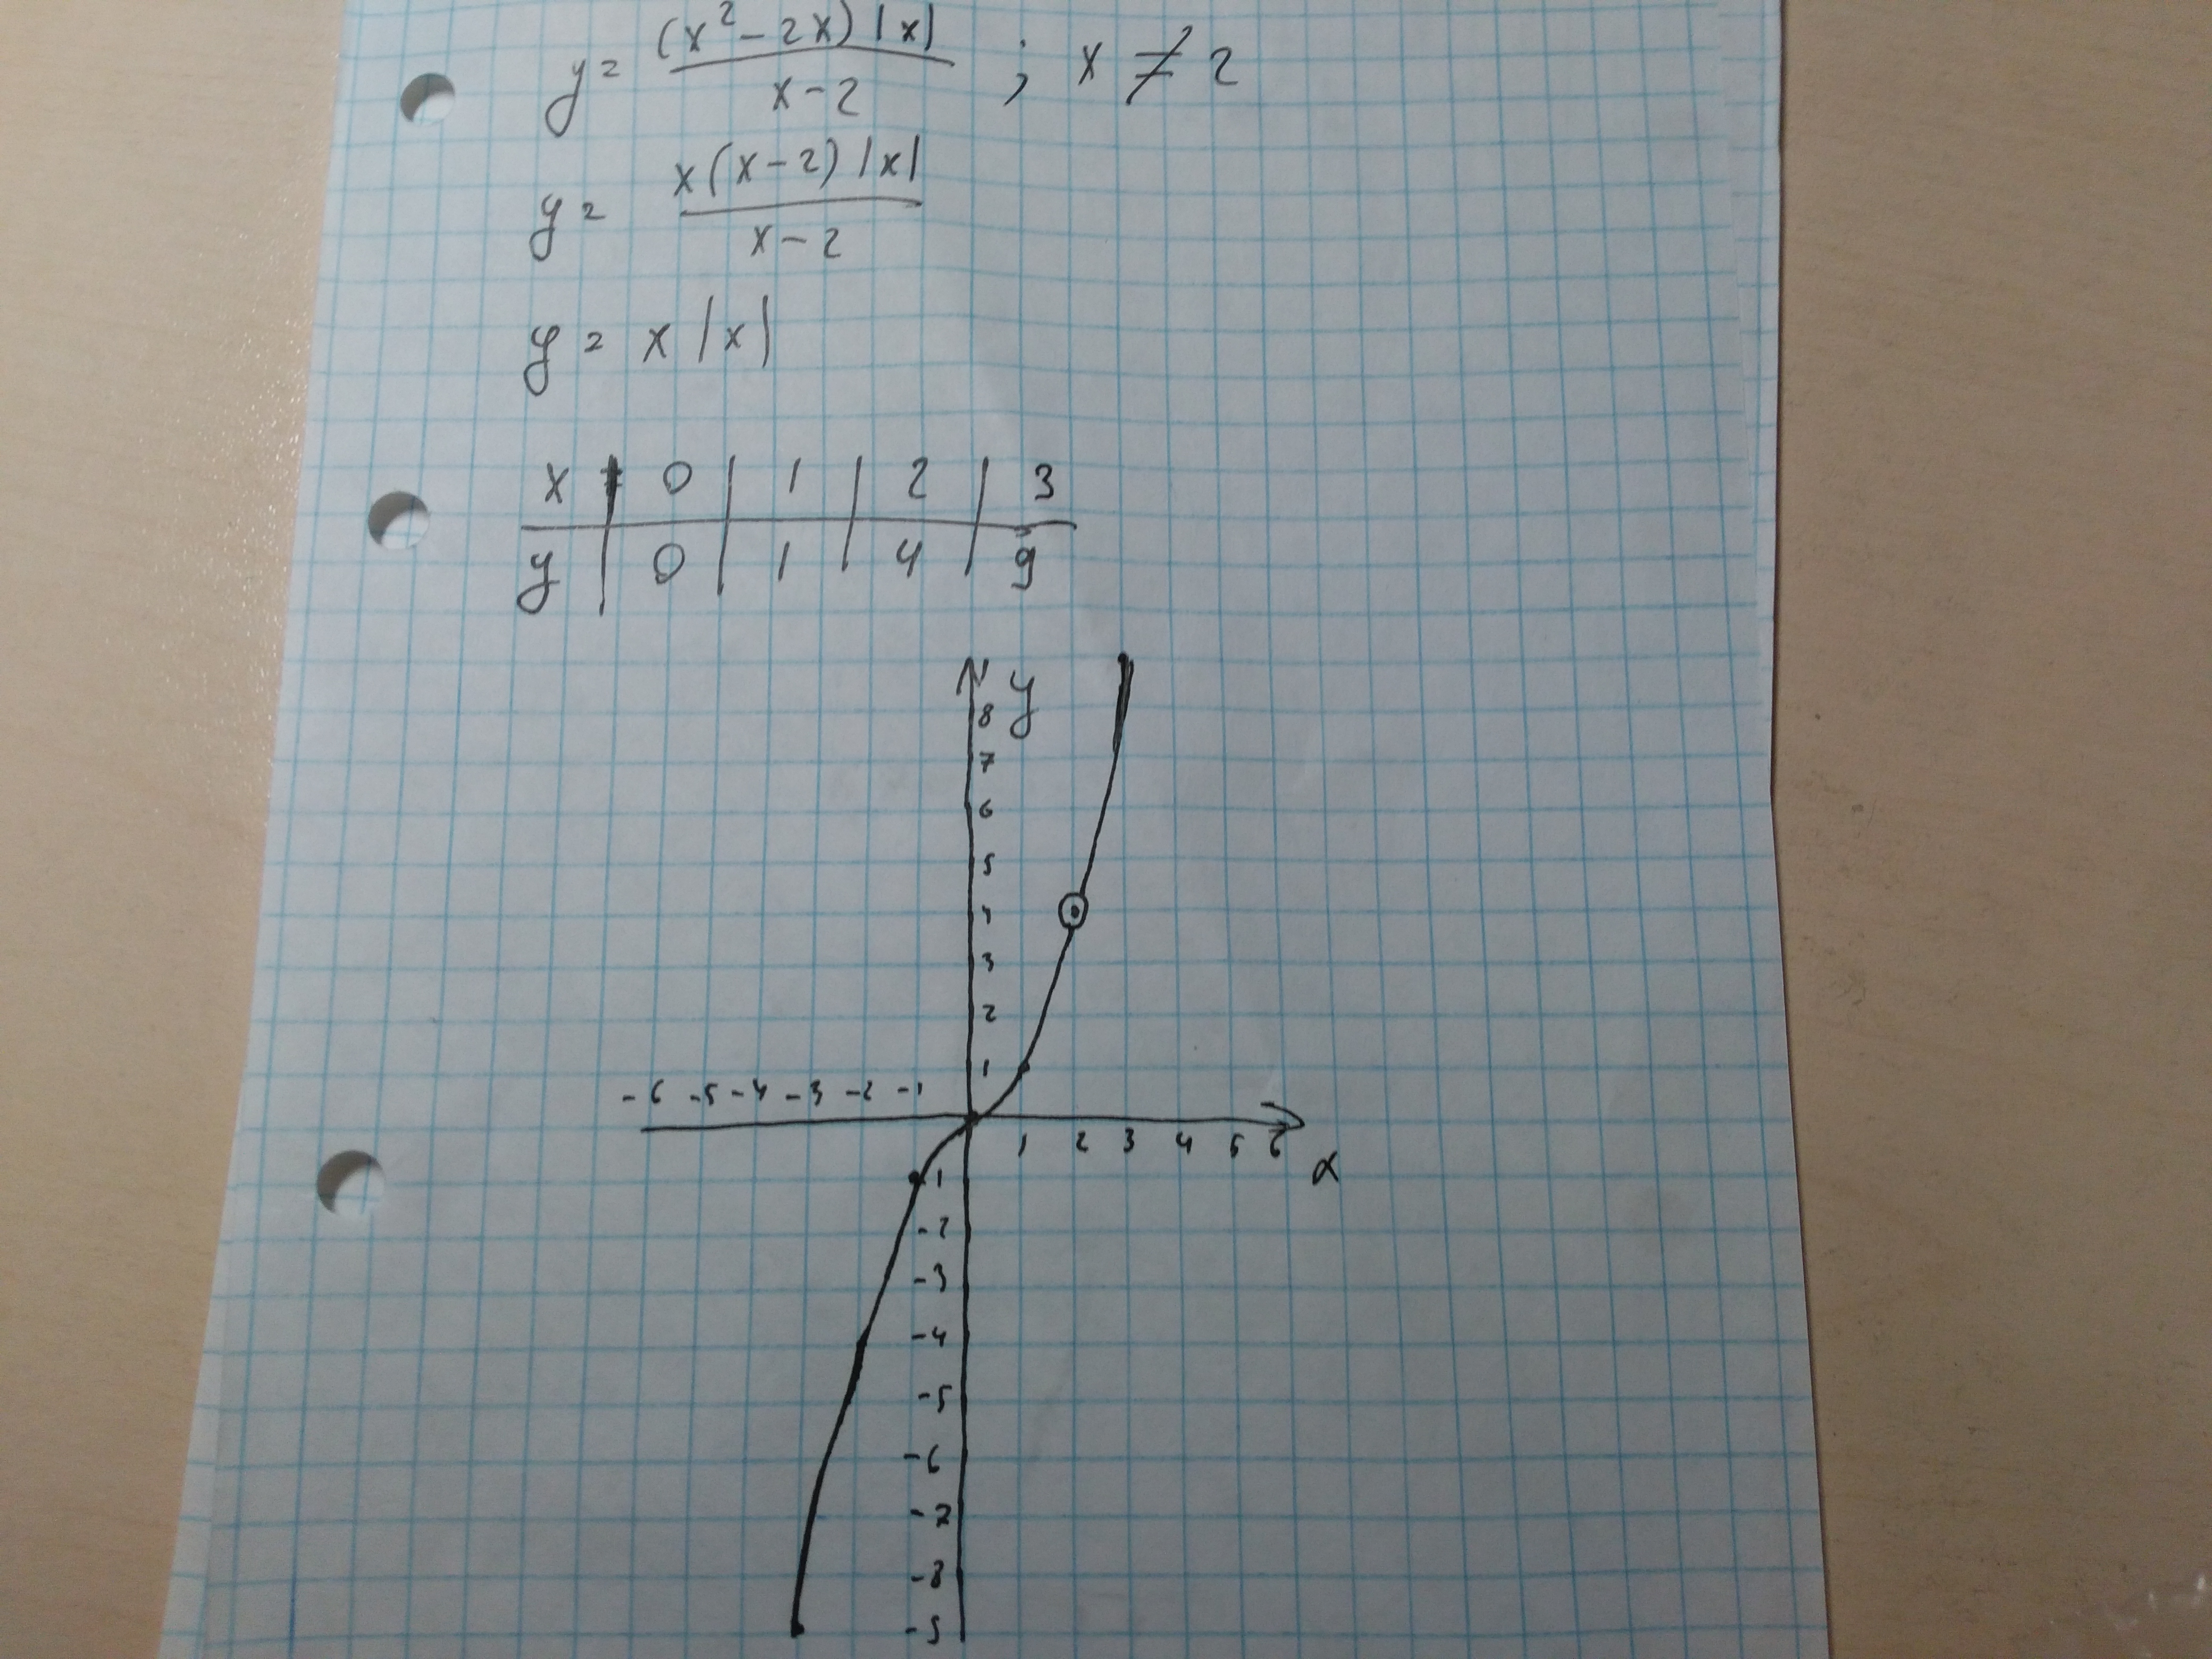 y = (x² - 2x) |x| / x - 2 ; x ≠ 2
y = x(x - 2) |x| / x - 2
y = x |x|
x | 0 | 1 | 2 | 3
y | 0 | 1 | 4 | 9
y
8
7
6
5
4
3
2
1
-6 -5 -4 -3 -2 -1
1 2 3 4 5 6
x
1
-2
-3
-4
-5
-6
-7
-8
-5